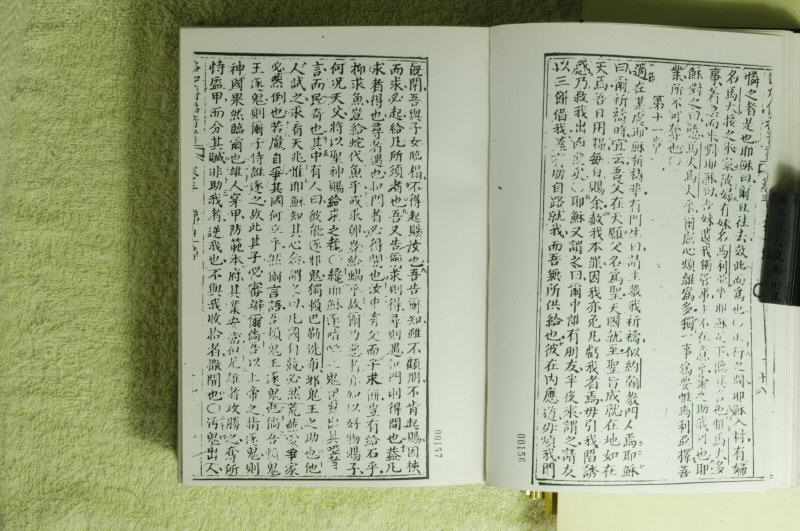 憐之者是也耶穌曰爾且往去效此而為也〇且行之間耶穌入村有婦
名馬大接之來家彼婦有妹名馬利坐耶穌足下聽其言也惟馬大多
事著急而來對耶穌曰吾妹遺我獨當事主不在意乎命之助我可也耶
穌對之曰馬大馬大乎爾慮心煩雜為多獨一事為要惟馬利亞擇善
業所不可奪也〇
第十一章
適在某處耶穌祈禱畢有門生曰請主教我祈禱似約翰教門人焉耶穌
曰爾祈禱時宜云吾父在天願父名為聖天國就至聖旨成就在地如在
天焉吾日用糧每日賜余赦我本罪因我亦免凡虧我者焉毋引我陷誘
惑乃救我出凶惡矣〇耶穌又謂之曰爾中誰有朋友半夜來謂之請友
以三餅借我蓋有朋自路就我而吾無所供給也彼在內應道毋煩我門
00156
既閉吾與子女臨榻不得起賜汝也吾告爾知雖不顧朋不肯起賜因挾
而求必起給凡所須者也吾又告爾求則得尋則遇扣門則得開也蓋凡
求者得也尋者遇也扣門者必得開也汝中有父而子求餅豈有給石乎
抑求魚豈給蛇代魚乎或求卵豈給蝎乎故爾乃惡者自知以好物賜子
何況天父將以聖神賜給求之者〇纔耶穌逐啞鬼鬼出其啞者
言而民奇也其中有人曰彼能逐邪鬼獨賴巴勒洗布邪鬼王之助也他
人試之求看天兆惟耶穌知其心念謂之曰凡國自競必然荒蕪家爭家
必然倒也若魔自爭其國何立乎然爾言語吾賴鬼王逐鬼也倘吾賴鬼
王逐鬼則爾子侍誰逐之故此其子必審爾倘吾以上帝之指逐鬼則
神國果然臨爾也雄人穿甲防範本府其業安當似尤雄者攻勝之奪所
恃盔甲而分其贓非助我者逆我也不與我收拾者撒開也〇汚鬼出人
00157